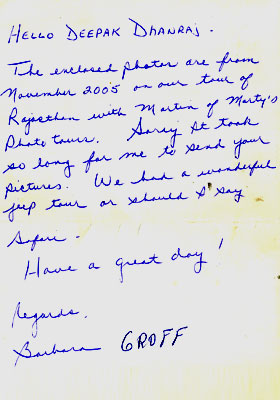 Hello Deepak Dhanraj.
The enclosed photos are from
November 2005 on our tour of
Rajasthan with Martin of Marty's
Photo tours. Sorry it took
so long for me to send your
pictures. We had a wonderful
jeep tour or should I say
Safari.
Have a great day!
Regards,
Barbara GROFF